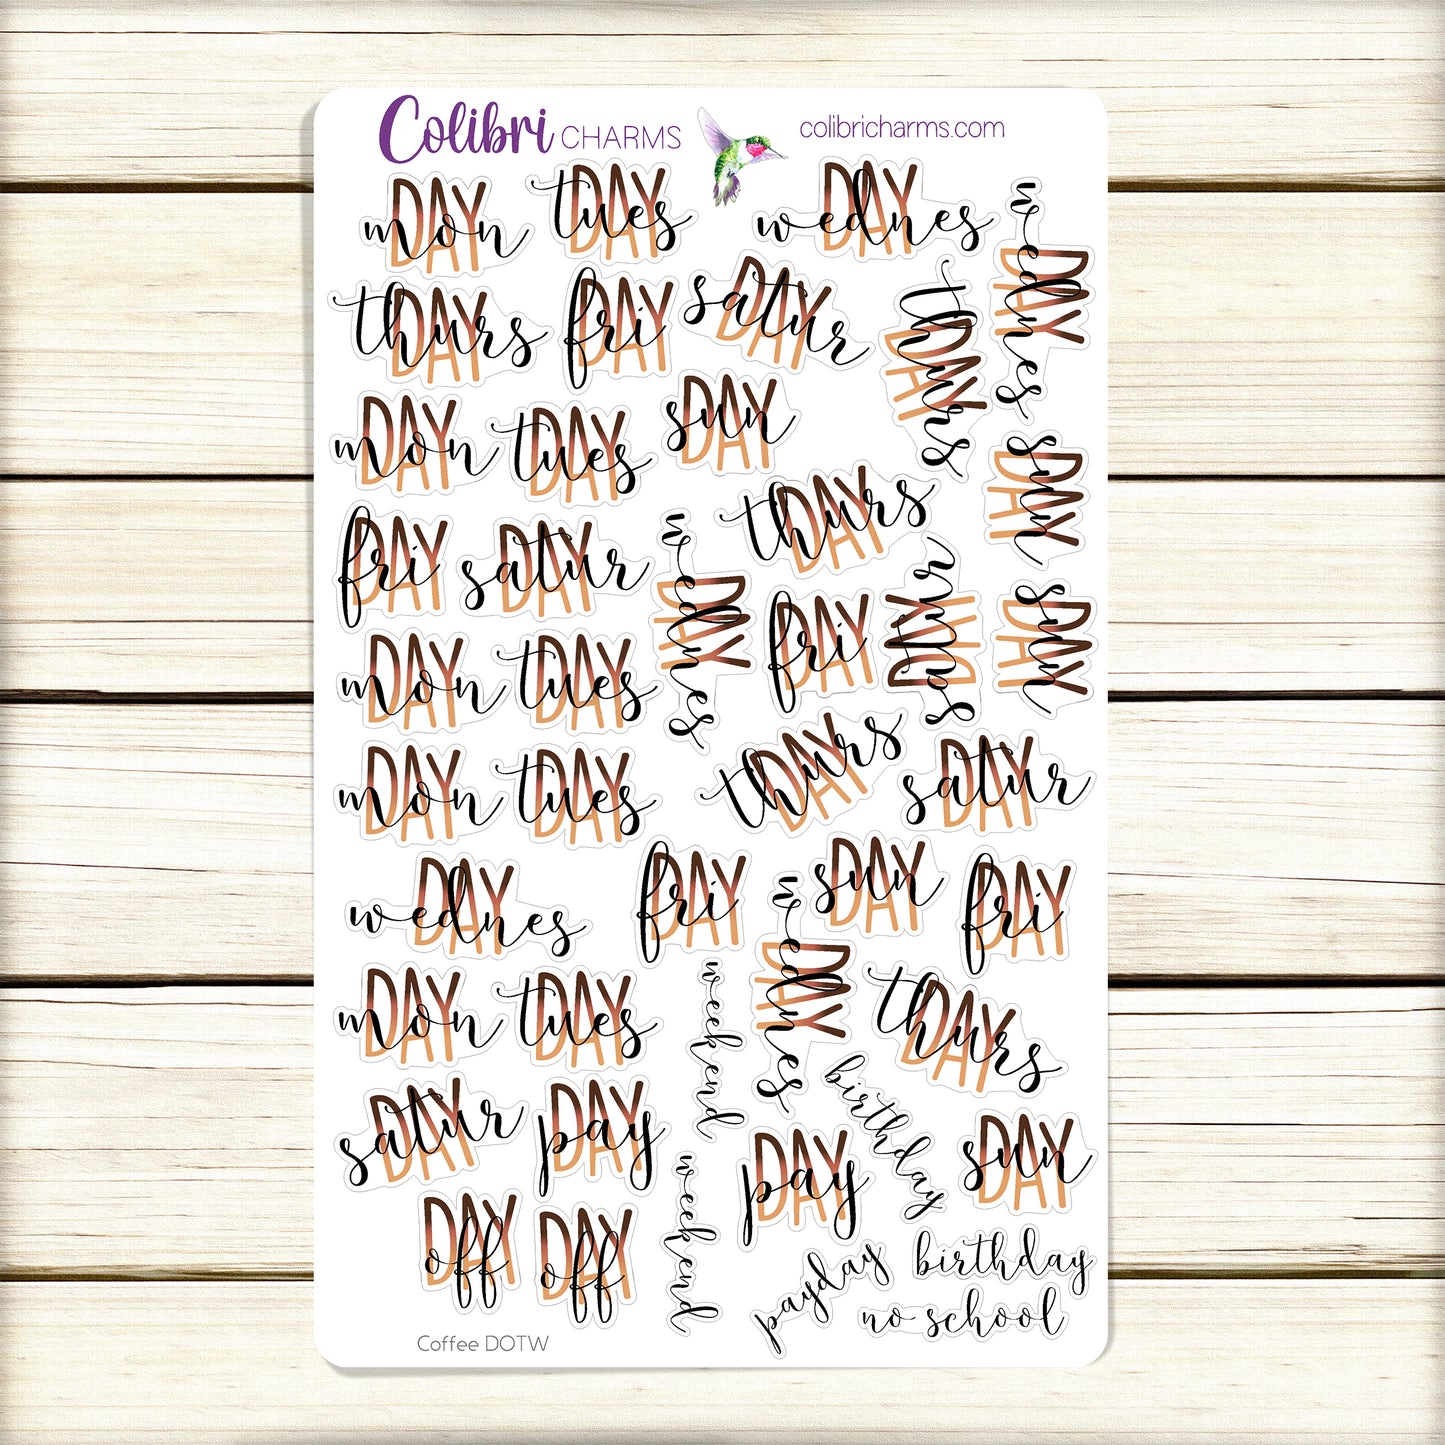 Colibri CHARMS
colibricharms.com
mon DAY
tues DAY
wednes DAY
wednes DAY
thurs DAY
fri DAY
satur DAY
thurs DAY
mon DAY
tues DAY
sun DAY
sun DAY
fri DAY
satur DAY
wednes DAY
thurs DAY
fri DAY
satur DAY
sun DAY
mon DAY
tues DAY
mon DAY
tues DAY
thurs DAY
satur DAY
wednes DAY
fri DAY
sun DAY
fri DAY
mon DAY
tues DAY
weekend
wednes DAY
thurs DAY
satur DAY
pay DAY
weekend
pay DAY
birthday
sun DAY
DAY off
DAY off
payday
birthday
no school
Coffee DOTW